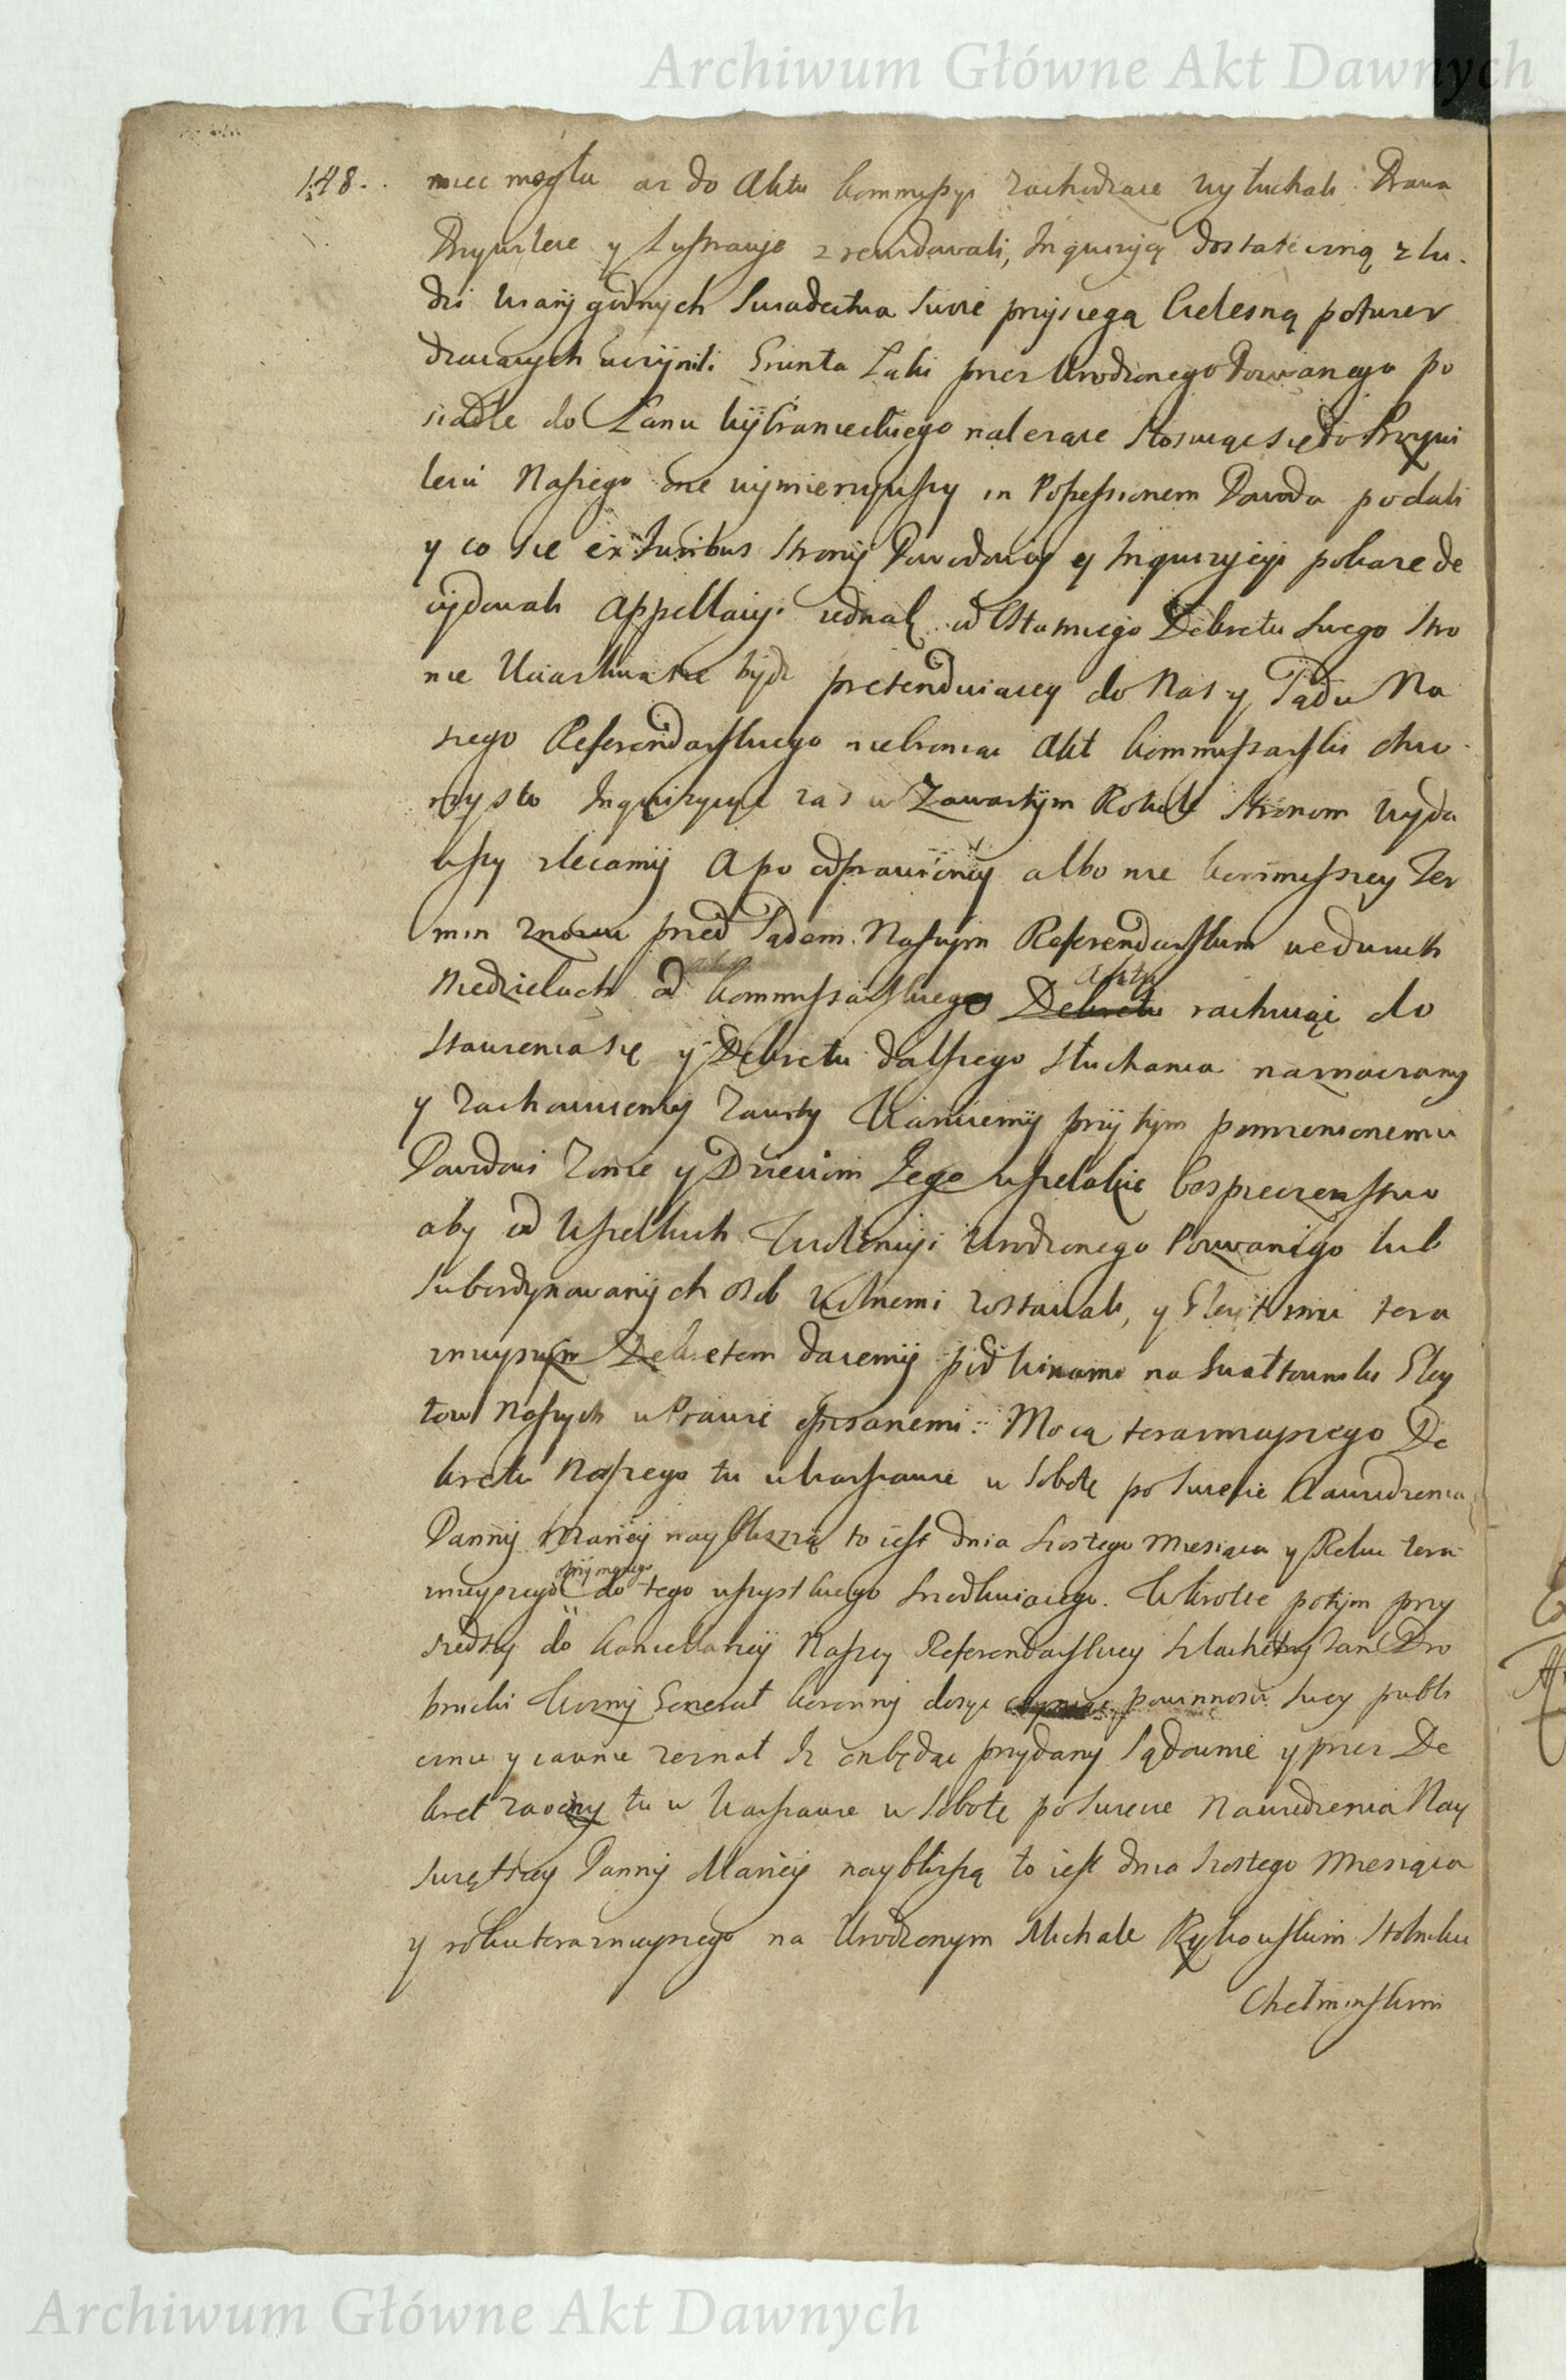 Archiwum Główne Akt Dawnych
148.
miec mogła az do Aktu Kommissyi zachodzące wysłuchali Prawa
Przywileie y Lustracye zrewidowali, Inquizycyą dostateczną z lu-
dzi wiary godnych Swiadectwa swoie przysięgą Cielesną potwier
dzaiących uczynili Grunta Łąki przez Urodzonego Pozwanego po
siadłe do Łanu Wybranieckiego nalezące stosuiąc się do Przywi
leiu Naszego one wymierzywszy in Possessionem Powoda podali
y co się ex Iuribus strony Powodowey y Inquizycyi pokaze de
cydowali Appellacyi iednak od Ostatniego Dekretu swego stro
nie Uciązliwa być pretenduiącey do Nas y Sądu Na
szego Referendarskiego niebroniąc Akt Kommissarski
Inquizycye zas w Zawartym Rotule stronom wyda
wszy zlecamy A po odprawioney albo nie Kommissyey Ter
min znowu przed Sądem Naszym Referendarskim we dwuch
Niedzielach od Kommissarskiego Dekretu rachuiąc do
Aktu
stawienia się y Dekretu dalszego słuchania naznaczamy
y Zachowuiemy Zawity Waruiemy przytym pomienionemu
Powodowi Zonie y Dzieciom Jego wszelakie bespieczenstwo
aby od wszelkich Urodzonego Pozwanego lub
subordynowanych osob wolnemi zostawali, y Gleytunii tera
znieyszym Dekretem daiemy pod winami na Gwałtowniki Gley
tow Naszych w Prawie opisanemi: Mocą teraznieyszego De
kretu Naszego tu w Warszawie w Sobotę po Swięcie Nawiedzenia
Panny Maryey naybliszszą to iest dnia szostego miesiąca y Roku tera
znieyszego do tego wszystkiego. Wkrotce potym przy
szedszy do Kancellaryey Naszey Referendarskiey Szlachetny Jan Dro
bnicki Wozny Generał Koronny dosyc powinnosci swey publi
cznie y iawnie zeznał Iz on będąc przydany Sądownie y przez De
kret zaoczny tu w Warszawie w Sobotę po Swięcie Nawiedzenia Nay
swiętszey Panny Maryey naybliszą to iest dnia szostego miesiąca
y roku teraznieyszego na Urodzonym Michale Rykowskim Stolniku
Chełminskim
Archiwum Główne Akt Dawnych